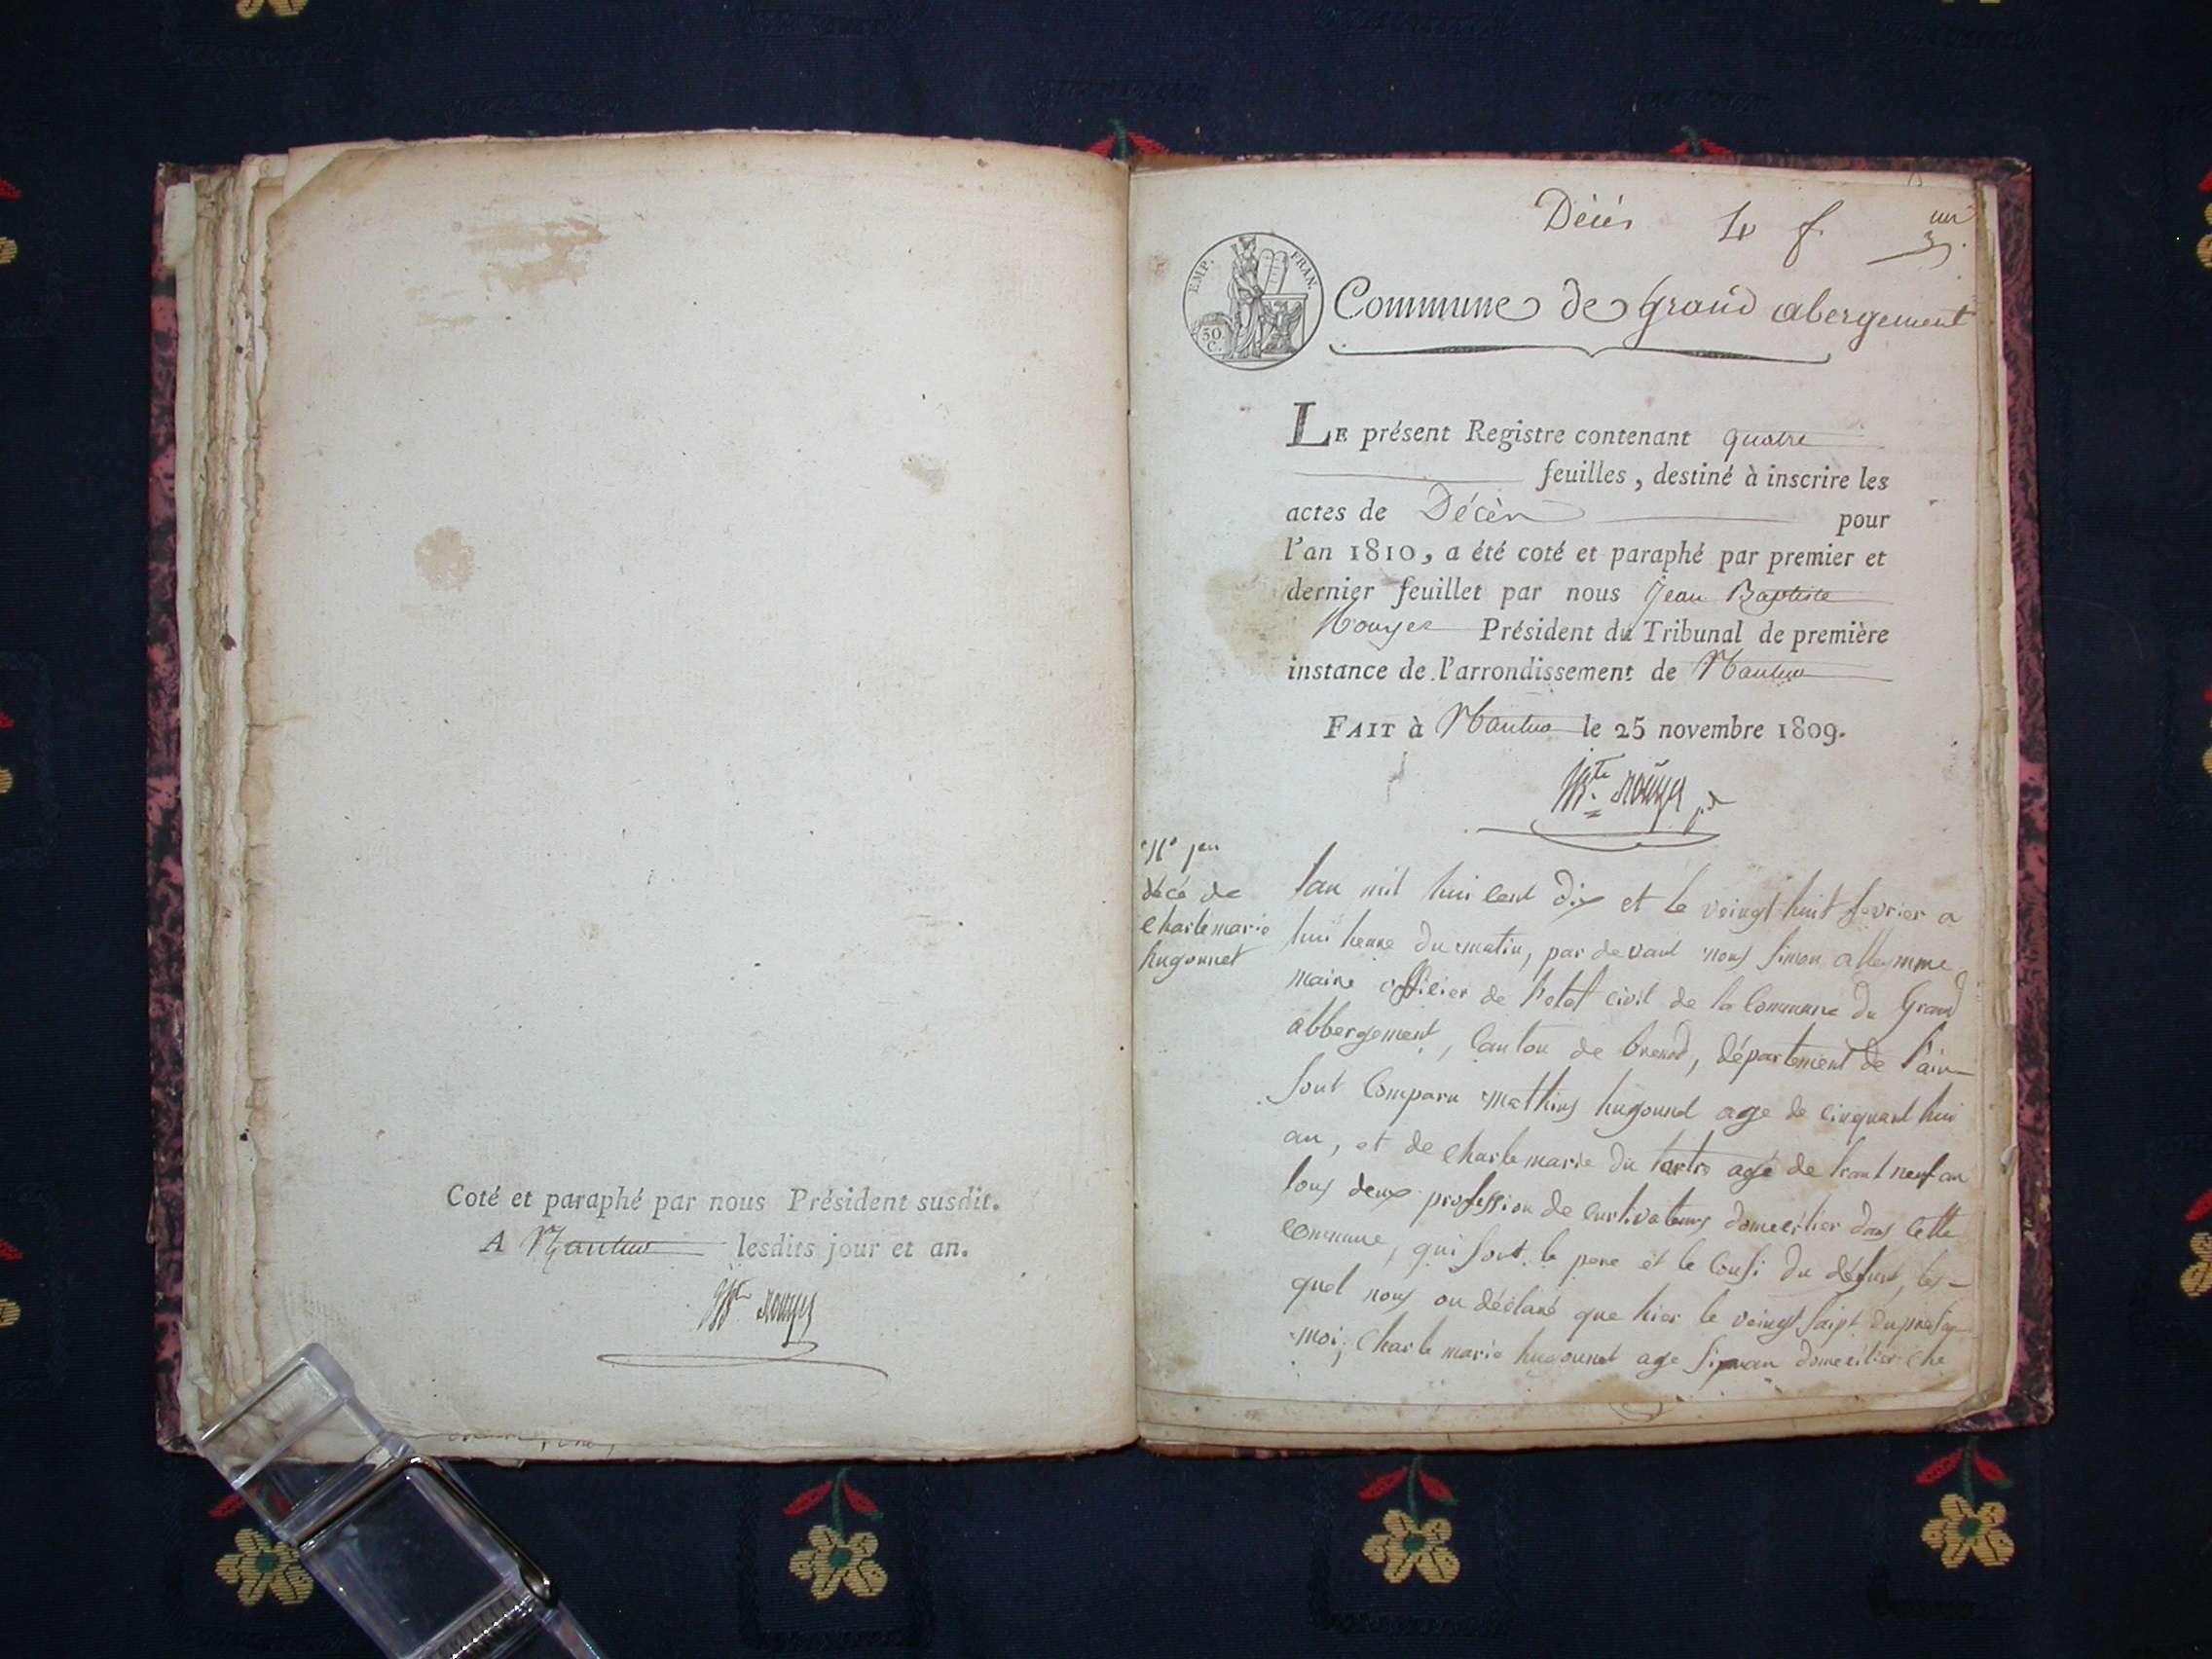 Coté et paraphé par nous Président susdit.
A Nantua lesdits jour et an.
Décés 4 f. un
EMP. FRAN.
50 C.
Commune de Grand abergement
LE présent Registre contenant quatre
feuilles, destiné à inscrire les
actes de Décès pour
l'an 1810, a été coté et paraphé par premier et
dernier feuillet par nous Jean Baptiste
Rouyer Président du Tribunal de première
instance de l'arrondissement de Nantua
FAIT à Nantua le 25 novembre 1809.
No 1er
décé de
Charle marie
hugonnet
lan mil hui cent dix et le veingt huit fevrier a
hui heure du matin, par devant nous simon alleymme
maire officier de l'etat civil de la Commune du Grand
abbergement, Canton de brenod, département de l'ain
sont Comparu mathieu hugonnet age de cinquant hui
an, et de Charle marie du tartre agé de trant neuf an
tous deux profession de curtivateurs domecilier dans cette
commune, qui sont le pere et le Cousi du défunt, les-
quel nous on déclaré que hier le veingt saipt du
moi, Charle marie hugounet age domecilier che